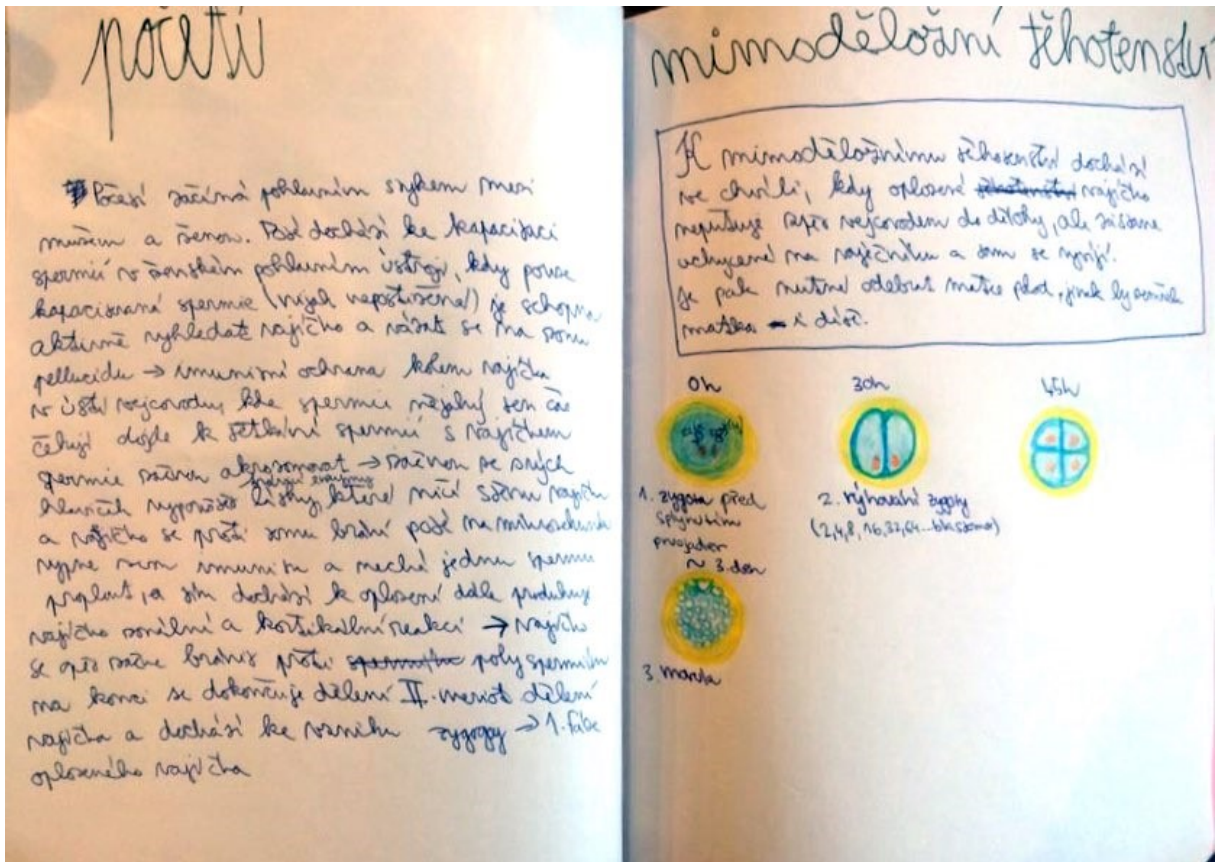 početí
Početí začíná pohlavním stykem mezi
mužem a ženou. Poté dochází ke kapacitaci
spermií v ženském pohlavním ústrojí, kdy pouze
kapacitovaná spermie (nijak nepoškozená) je schopna
aktivně vyhledat vajíčko a vázat se na zonu
pellucidu → imunitní ochrana kolem vajíčka
v ústí vejcovodu, kde spermie nějaký ten čas
čekají dojde k setkání spermií s vajíčkem
spermie začnou akrozomovat → začnou se svých
hlavičk vypouštět které ničí stěnu vajíčka
a vajíčko se proti tomu brání poté na mikrosekundu
vypne svou imunitu a nechá jednu spermii
proplout, a tím dochází k oplození dále produkuje
vajíčko zonální a kortikální reakci → vajíčko
se opět začne bránit proti polyspermiím
na konci se dokončuje dělení II. meiot dělení
vajíčka a dochází ke vzniku zygogy → 1. fáze
oplozeného vajíčka
mimoděložní těhotenství
K mimoděložnímu těhotenství dochází
ve chvíli, kdy oplozené vajíčko
neputuje zpět vejcovodem do dělohy, ale zůstane
uchycené na vaječníku a tam se vyvíjí.
Je pak nutné odebrat matce plod, jinak by zemřela
matka i dítě.
0h 30h 45h
1. zygota před
splynutím
prvojader
2. rýhování zygoty
(2,4,8, 16,32,64...blastomer)
~ 3. den
3. morula